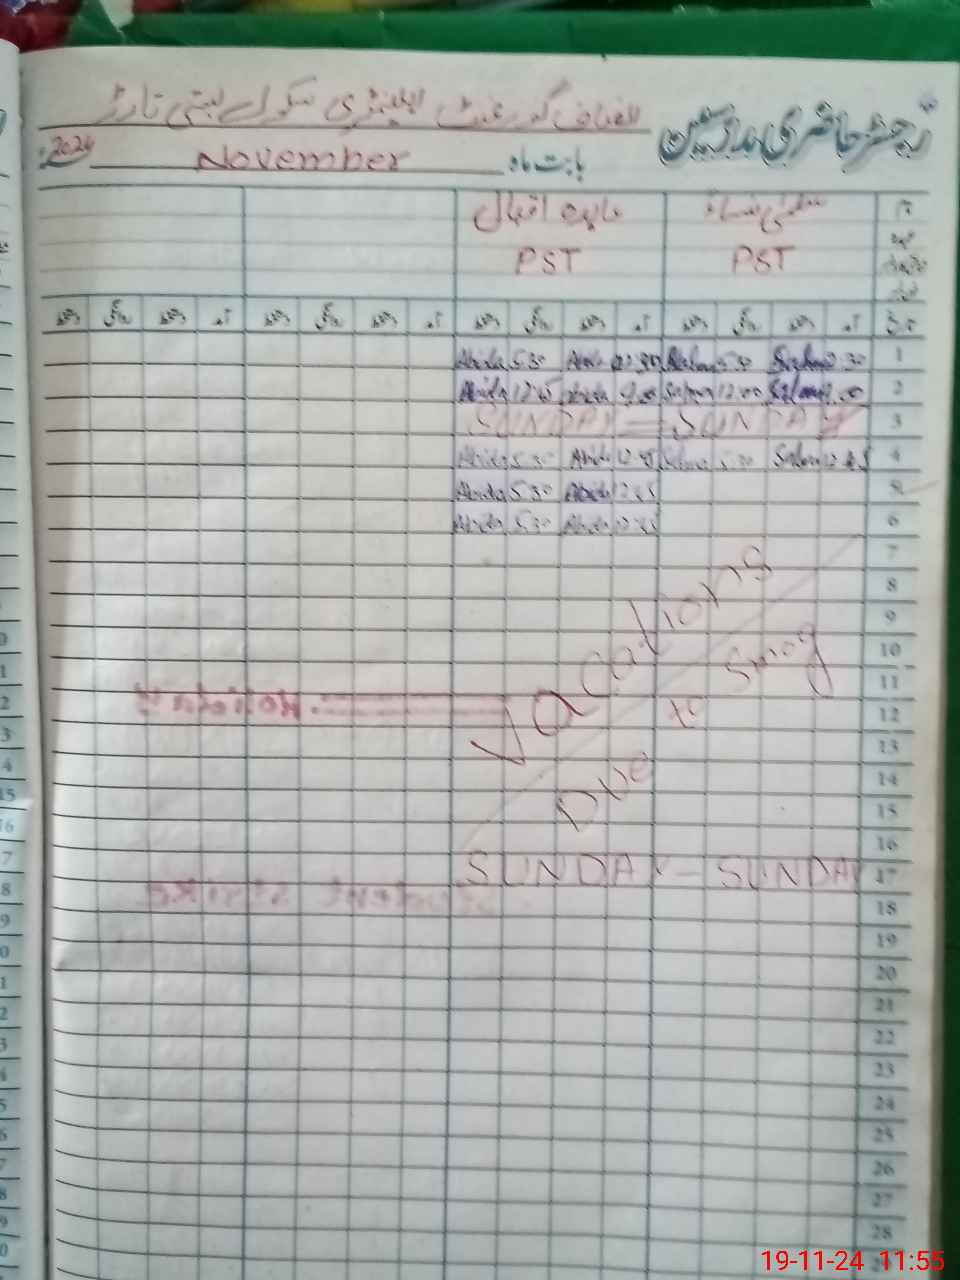 رجسٹر حاضری مدرسین
الضاف گورنمنٹ ایلیمنٹری سکول بستی تارڑ
بابت ماہ November 2024
نام عابدہ اقبال
عہدہ PST PST
تاریخ آمد دستخط روانگی دستخط آمد دستخط روانگی دستخط آمد دستخط روانگی دستخط آمد دستخط روانگی دستخط
1 12:30 Salma 5:30 Salma 12:30 Abida 5:30 Abida
2 9:00 Salma 12:00 Salma 9:00 Abida 12:15 Abida
3 SUNDAY SUNDAY
4 12:45 Salma 5:30 Salma 12:45 Abida 5:30 Abida
5 12:45 Abida 5:30 Abida
6 12:45 Abida 5:30 Abida
7
8
9
10
11
12
13
14
15
16
Vacations
Due to Smog
17 SUNDAY - SUNDAY
18
19
20
21
22
23
24
25
26
27
28
19-11-24 11:55